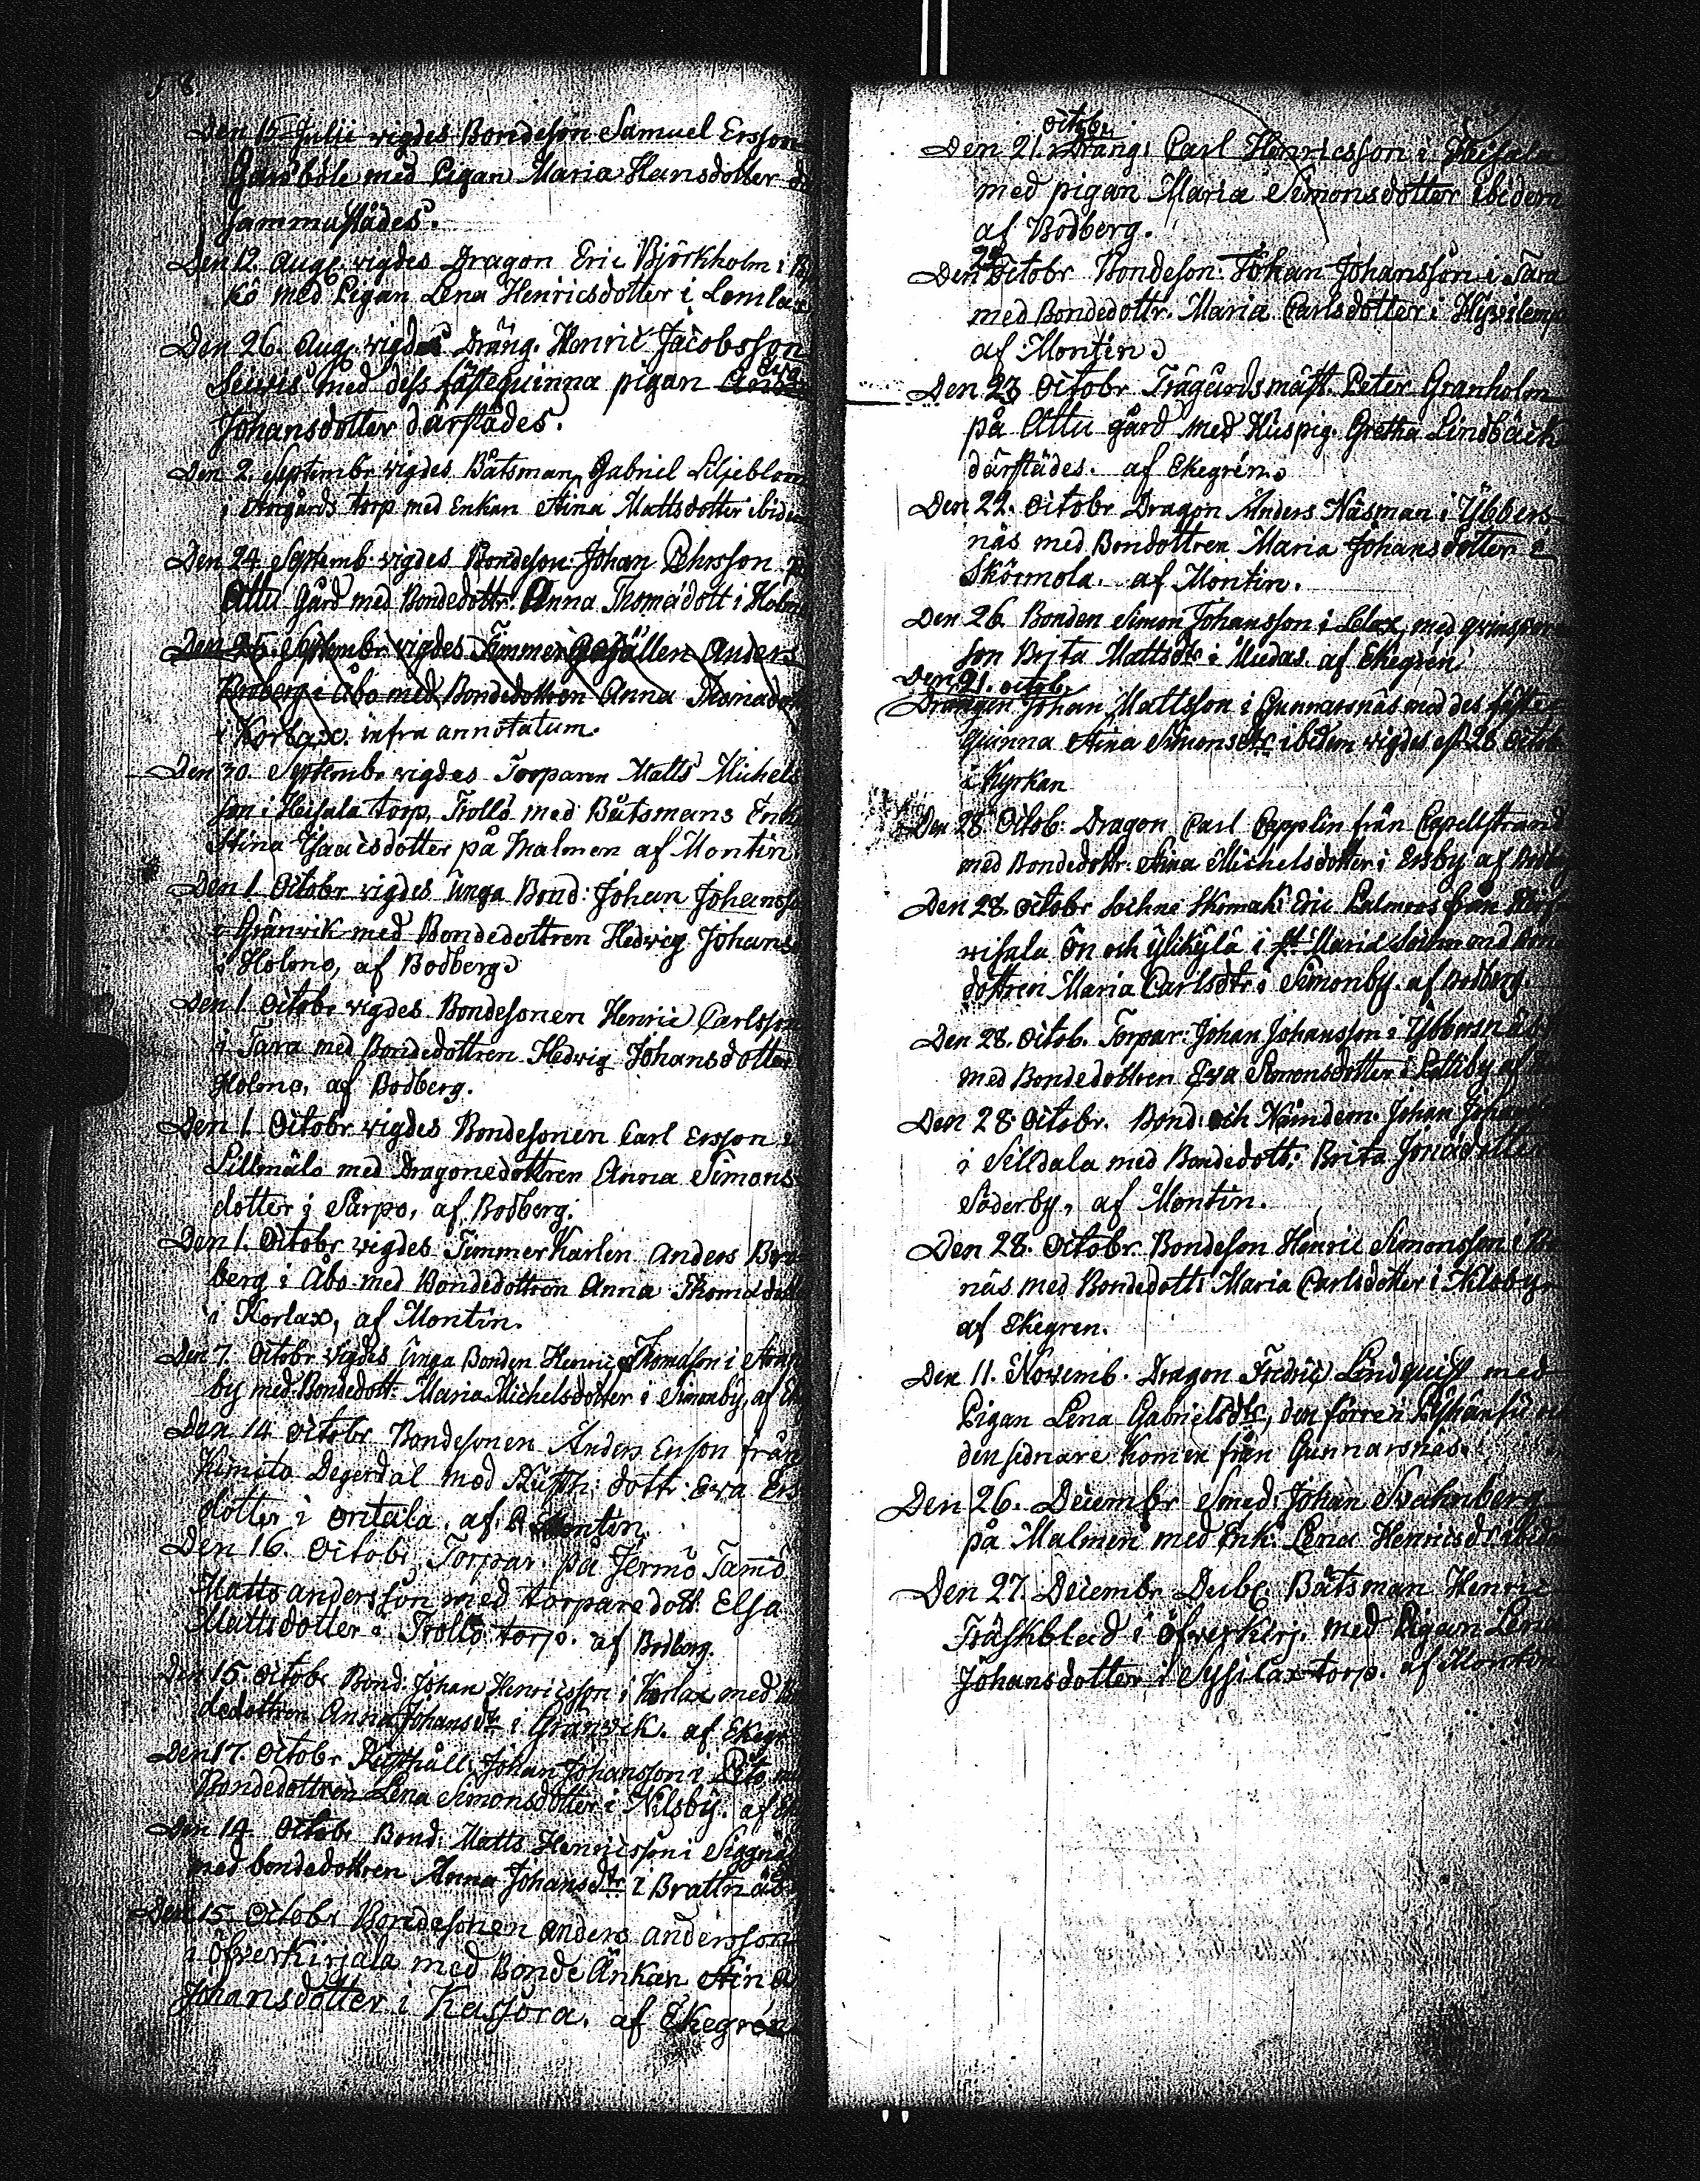 Den 15 Julii vigdes Bondeson Samuel Ersson
Gardböle med Pigan Maria Hansdotter
sammastädes.
Den 12. Aug. vigdes Dragon Eric Björkholm i
kö med Pigan Lena Henricsdotter i Lemlax
Den 26. Aug. vigdes Dräng. Henric Jacobsson
med dess fästequinna pigan
Johansdotter därstädes.
Den 2. Septembr vigdes Båtsman Gabriel Liljeblom
i torp med Enkan Stina Mattsdotter ibidem
Den 24 Septemb. vigdes Bondeson Johan Pehrsson
Attu Gård med Bondedottr. Anna Thomædott i Holm
Den 25. Septembr vigdes Timmer Gesällen Anders
Broberg i Åbo med Bondedottren Anna Thomædott
i Korlax. infra annotatum.
Den 30. Septembr vigdes Torparen Matts Michels
son i Heisala torp, Trollö med Båtsmans Enka
Stina Isaacsdotter på Malmen af Montin
Den 1. Octobr vigdes Unga Bond: Johan Johansso
i Granvik med Bondedottren Hedvig Johans
i Holono, af Bodberg
Den 1. Octobr vigdes Bondesonen Henric Carlsson
i Tara med Bondedottren Hedvig Johansdotter
Holono, af Bodberg.
Den 1. Octobr vigdes Bondesonen Carl Ersson i
Lillmälö med Dragonedottren Anna Simons
dotter i Särpo, af Bodberg.
Den 1. Octobr vigdes Timmerkarlen Anders Bro
berg i Åbo med Bondedottren Anna Thomædott
i Korlax, af Montin.
Den 7. Octobr vigdes Unga Bonden Henric Thomasson i
by med Bondedott: Maria Michelsdotter i Simonby, af
Den 14 Octobr Bondesonen Anders Ersson från
Kimito Degerdal med Rusth: dottr: Eva Ers
dotter i Oritala. af Montin.
Den 16. Octobr Torpar. på Jermo Tamö
Matts andersson med torparedott. Elsa
Mattsdotter i Trollö torp. af Bodberg.
Den 15. Octobr Bond: Johan Henricsson i Korlax med Bon
dedottren Anna Johansdtr i Granvik. af Ekegr
Den 17. Octobr Rusthåll. Johan Johansson i
Bondedottren Lena Simonsdotter i Nilsby. af
Den 14 Octobr Bond: Matts Henricsson i Siggnäs
med bondedottren Anna Johansdtr i Brattnäs
Den 15. Octobr Bondesonen Anders andersson
i Öfverkirjala med Bonde Änkan Stina
Johansdotter i Kassora. af Ekegrén
Octobr
Den 21. Dräng: Carl Henricsson i Heisala
med pigan Maria Simonsdotter ibidem
af Bodberg.
22
Den Octobr Bondeson: Johan Johansson i Tara
med Bondedottr. Maria Carlsdotter i Hyvilemp
af Montin
Den 23 Octobr Trägårdsmäst. Peter Granholm
på Attu gård med Huspig. Gretha Lindbäck
därstädes. af Ekegrén
Den 22. Octobr Dragon Anders Näsman i Ybbers
näs med Bondottren Maria Johansdotter i
Skörmola. af Montin.
Den 26 Bonden Simon Johansson i Lelax, med
son Brita Mattsdtr i Mudas. af Ekegrén
Den 21. octob.
Drängen Johan Mattsson i Gunnarsnäs med des fäste
quinna Stina Simonsdtr ibidem vigdes 28 Octob
i Kyrkan
Den 28 Octob: Dragon Carl Capplin från Capellstrand
med Bondedottr. Stina Michelsdotter i Ersby af Bodb
Den 28. Octobr Sochne Skomak: Eric Palmroos från
visala Ön och Ylikylä i St Marie Sochn med
dottren Maria Carlsdtr i Simonby. af Bodberg.
Den 28. Octob. Torpar: Johan Johansson i Ybbersnäs
med Bondedottren Eva Simonsdotter i Pettiby af
Den 28 Octobr. Bond: och Nämndem. Johan Johans
i Silldala med Bondedott: Brita Jonædotter
Söderby, af Montin.
Den 28. Octobr Bondeson Henric Simonsson i
näs med Bondedott: Maria Carlsdotter i Nilsby
af Ekegren.
Den 11. Novemb. Dragon Fredric Lindquist med
Pigan Lena Gabrielsdtr, den förre i
den sednare komen från Gunnarsnäs.
Den 26. Decembr Smed: Johan Svahnberg
på Malmen med Enk: Lena Henricsdr ibidem
Den 27. Decembr Dubl. Båtsman Henric
Träskblad i Öfverkirj. med Pigan Lena
Johansdotter i Sysilax torp. af Montin